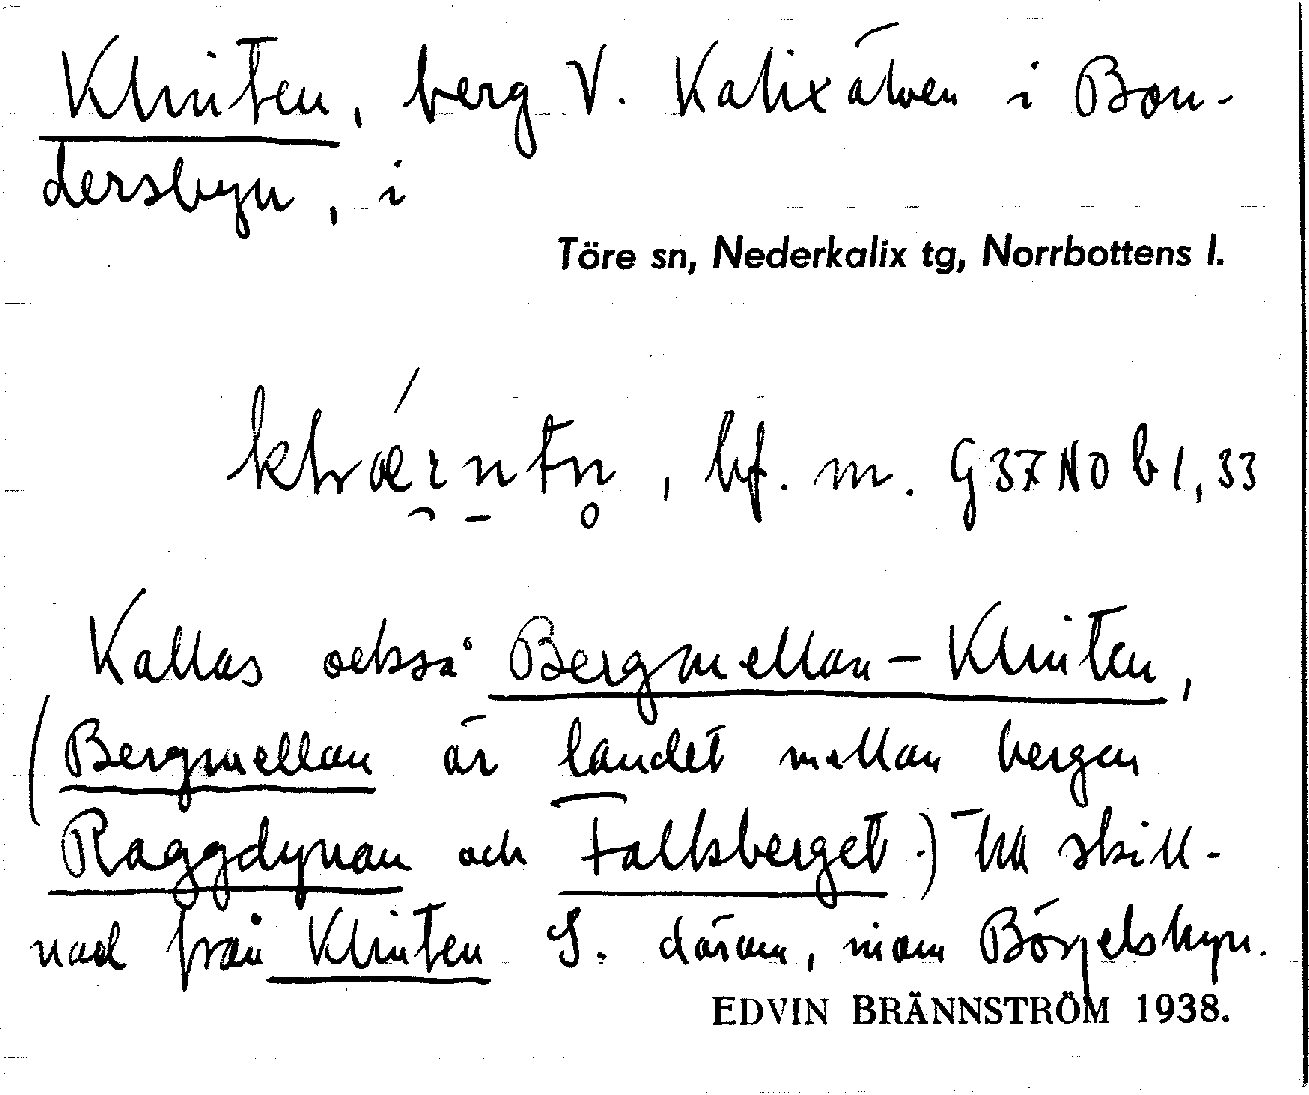 Klinten, berg V. Kalixälven i Bon-
dersbyn, i
Töre sn, Nederkalix tg, Norrbottens l.
bf. m. G 37 NO b 1, 33
Kallas också Bergmellan-Klinten,
(Bergmellan är landet mellan bergen
Raggdynan och Falksberget.) Till skill-
nad från Klinten S. därom, inom Börjelsbyn.
EDVIN BRÄNNSTRÖM 1938.